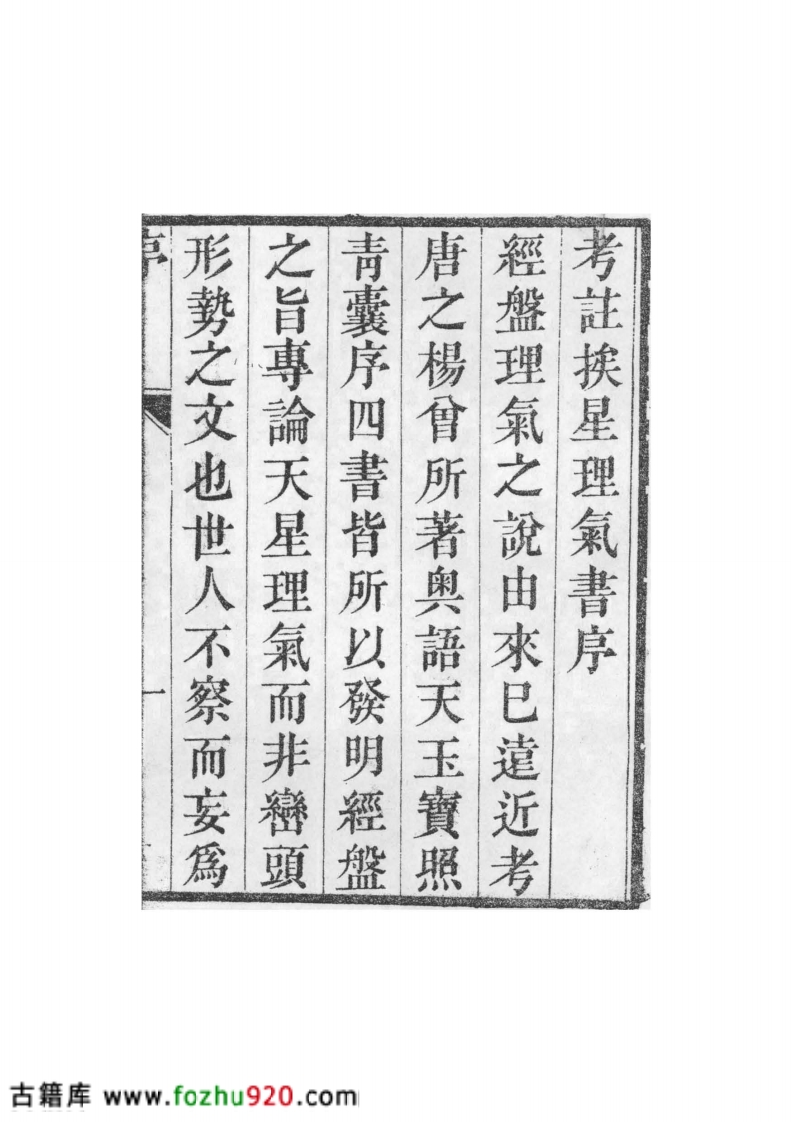 考註挨星理氣書序
經盤理氣之說由來已遠近考
唐之楊曾所著奥語天玉寶照
靑囊序四書皆所以發明經盤
之旨專論天星理氣而非巒頭
形勢之文也世人不察而妄爲
序
一
古籍库 www.fozhu920.com